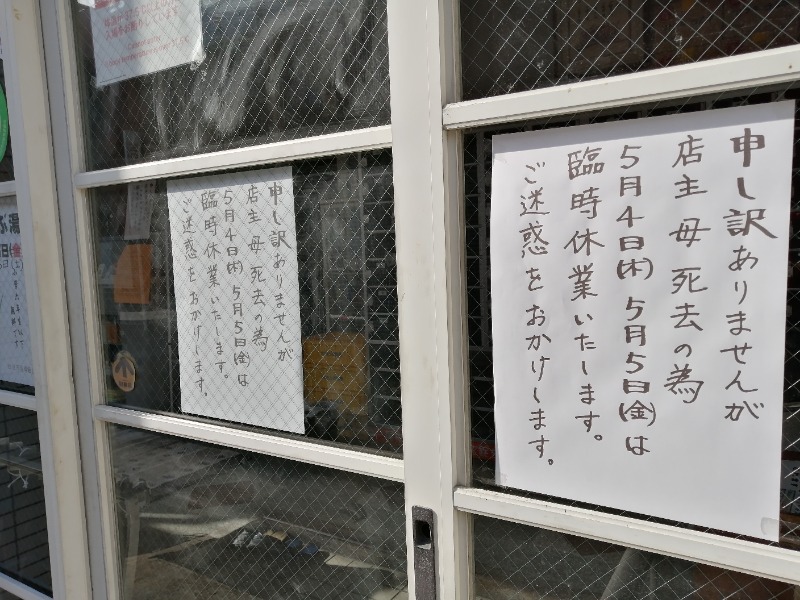 申し訳ありませんが
店主 母 死去の為
5月4日(木) 5月5日(金)は
臨時休業いたします。
ご迷惑をおかけします。
申し訳ありませんが
店主 母 死去の為
5月4日(木) 5月5日(金)は
臨時休業いたします。
ご迷惑をおかけします。
ぶ湯
日(金)